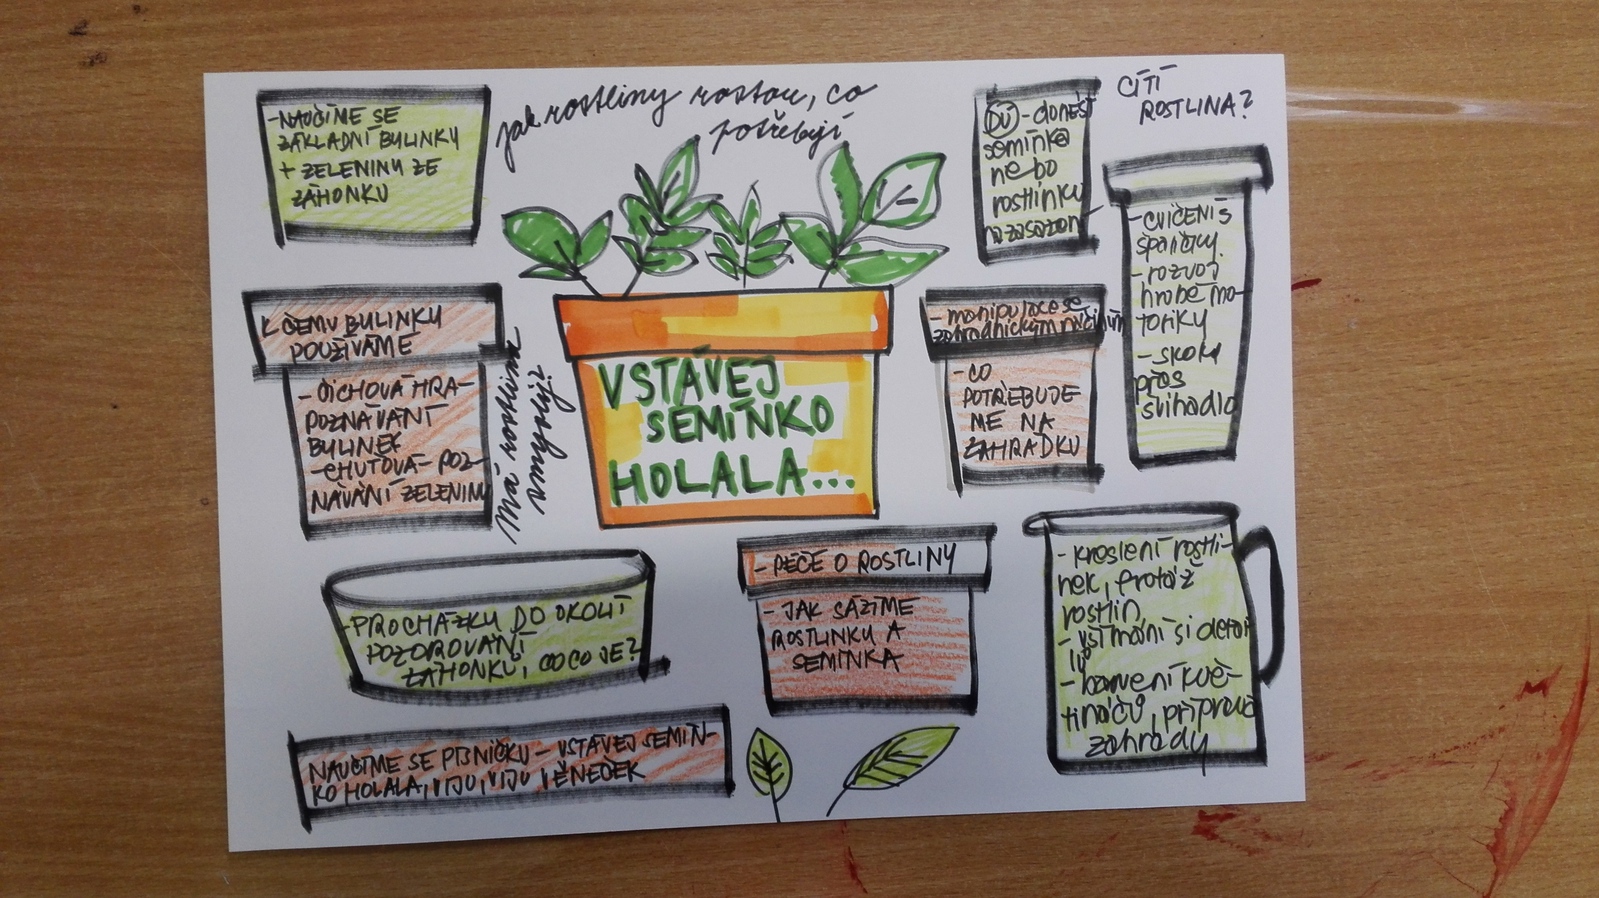 -NAUČÍME SE
ZÁKLADNÍ BYLINKY
+ ZELENINU ZE
ZÁHONKU
jak rostliny rostou, co
potřebují
DÚ - donést
semínka
nebo
rostlinku
na zasazení
CÍTÍ
ROSTLINA?
- CVIČENÍ S
špalíčky.
- rozvoj
hrubé mo-
toriky
- skoky
přes
švihadlo
K ČEMU BYLINKY
POUŽÍVÁME
- ČICHOVÁ HRA-
POZNÁVÁNÍ
BYLINEK
- CHUŤOVÁ - POZ-
NÁVÁNÍ ZELENINY
Má rostlina
smysly?
VSTÁVEJ
SEMÍNKO
HOLALA...
- manipulace se
zahradnickým náčiním
- CO
POTŘEBUJE
ME NA
ZAHRÁDKU
- PROCHÁZKY DO OKOLÍ
POZOROVÁNÍ
ZÁHONKŮ, CO CO JE?
- PÉČE O ROSTLINY
- JAK SÁZÍME
ROSTLINKU A
SEMÍNKA
- kreslení rostli-
nek, frotáž
rostlin
- všímání si detai
lů
- barvení kvě-
tináčů, příprava
zahrady
NAUČÍME SE PÍSNIČKU - VSTÁVEJ SEMÍN-
KO HOLALA, VIJU, VIJU VĚNEČEK